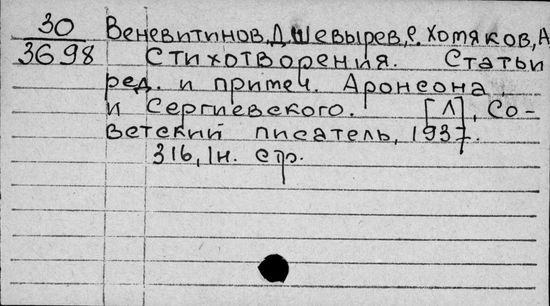 30 Веневитинов, Д, Шевырев, С. Хомяков, А
3698 Стихотворения. Статьи
ред. и примеч. Аронсона
и Сергиевского. [Л], Со-
ветский писатель, 1937.
316, 1н. стр.